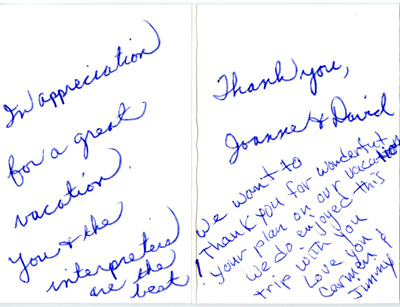 In appreciation
for a great
vacation.
You & the
interpreters
are the
best
!
Thank you,
Joanne & David
We want to
Thank you for wonderful
your plan on our vacations
We do enjoyed this
trip with you
Love you
Carmen &
Jimmy